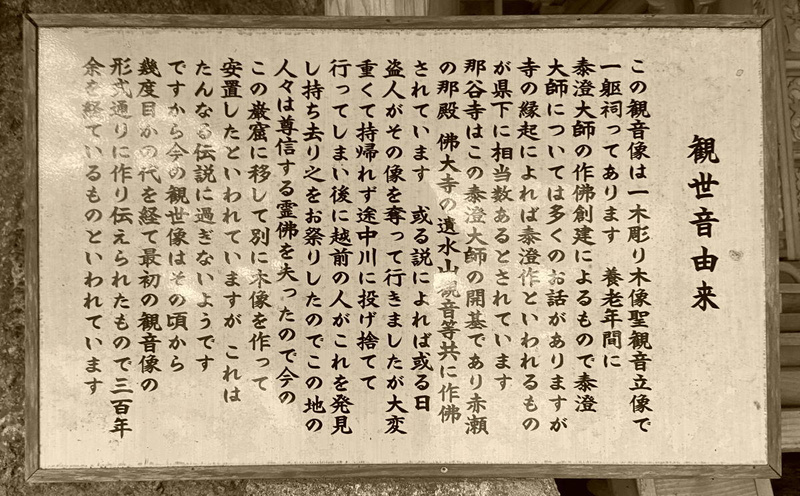 観世音由来
この観音像は一木彫り木像聖観音立像で
一躯祠ってあります　養老年間に
泰澄大師の作佛創建によるもので泰澄
大師については多くのお話がありますが
寺の縁起によれば泰澄作といわれるもの
が県下に相当数あるとされています
那谷寺はこの泰澄大師の開基であり赤瀬
の那殿　佛大寺の遺水山観音等共に作佛
されています　或る説によれば或る日
盗人がその像を奪って行きましたが大変
重くて持帰れず途中川に投げ捨てて
行ってしまい後に越前の人がこれを発見
し持ち去り之をお祭りしたのでこの地の
人々は尊信する霊佛を失ったので今の
この巌窟に移して別に木像を作って
安置したといわれていますが　これは
たんなる伝説に過ぎないようです
ですから今の観世像はその頃から
幾度目かの代を経て最初の観音像の
形式通りに作り伝えられたもので三百年
余を経ているものといわれています